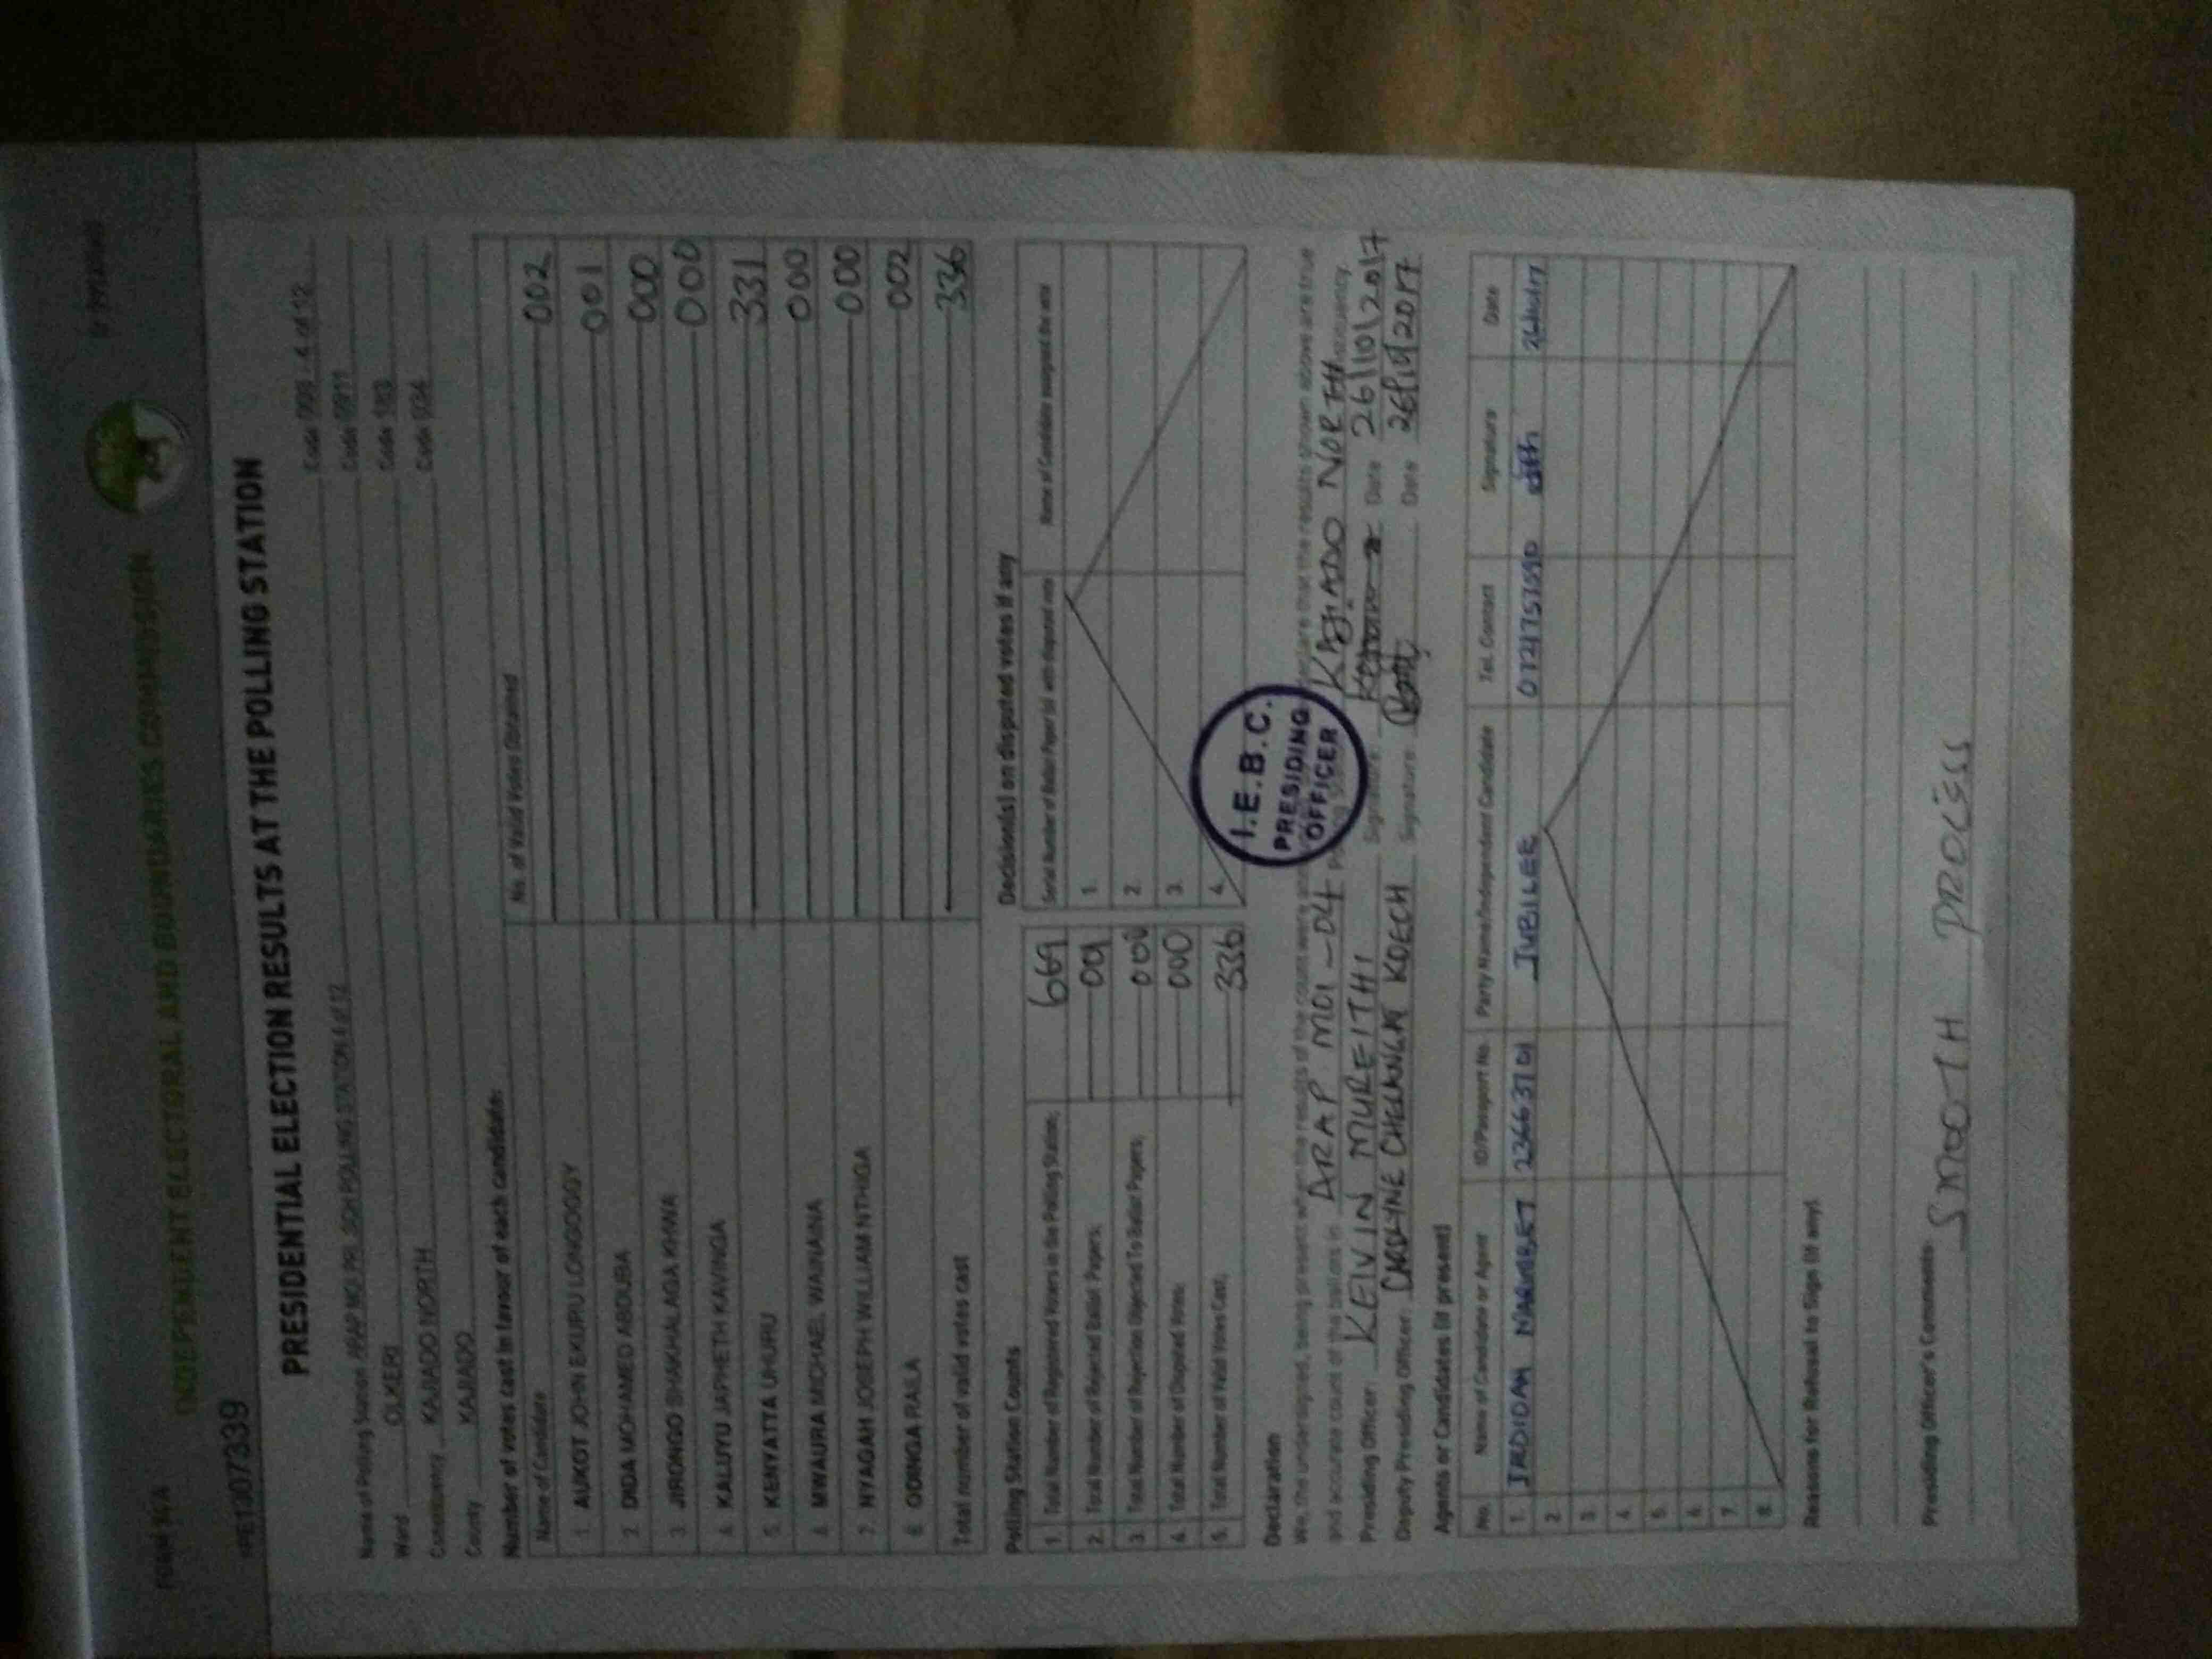 FORM 34A
INDEPENDENT ELECTORAL AND BOUNDARIES COMMISSION
PRESIDENTIAL ELECTION RESULTS AT THE POLLING STATION
Name of Polling Station ARAP MOI PRI. SCH POLLING STATION 4 of 12 Code 009 - 4 of 12
Ward OLKERI Code 0911
Constituency KAJIADO NORTH Code 183
County KAJIADO Code 034
Number of votes cast in favour of each candidate:
Name of Candidate No. of Valid Votes Obtained
1. AUKOT JOHN EKURU LONGOGGY 002
2. DIDA MOHAMED ABDUBA 001
3. JIRONGO SHAKHALAGA KHWA 000
4. KALUYU JAPHETH KAVINGA 000
5. KENYATTA UHURU 331
6. MWAURA MICHAEL WAINAINA 000
7. NYAGAH JOSEPH WILLIAM NTHIGA 000
8. ODINGA RAILA 002
Total number of valid votes cast 336
Polling Station Counts
1. Total Number of Registered Voters in the Polling Station; 669
2. Total Number of Rejected Ballot Papers;
3. Total Number of Rejection Objected To Ballot Papers; 000
4. Total Number of Disputed Votes; 000
5. Total Number of Valid Votes Cast; 336
Decision(s) on disputed votes if any
Serial Number of Ballot Paper (s) with disputed vote Name of Candidate assigned the vote
1.
2.
3.
4.
Declaration
We, the undersigned, being present when the results of the count were that the results shown above are true
and accurate count of the ballots in ARAP MOI - 04 KAJIADO NORTH Constituency.
Presiding Officer: KELVIN MUREITHI Signature Date 26/10/2017
Deputy Presiding Officer: CAROLYNE CHELANGAT KOECH Signature Date 26/10/2017
I.E.B.C.
PRESIDING
OFFICER
Agents or Candidates (if present)
No. Name of Candidate or Agent ID/Passport No. Party Name/Independent Candidate Tel. Contact Signature Date
1. 23663701 JUBILEE
2
3
4
5
6
7
8
Reasons for Refusal to Sign (if any).
Presiding Officer's Comments:
SMOOTH PROCESS